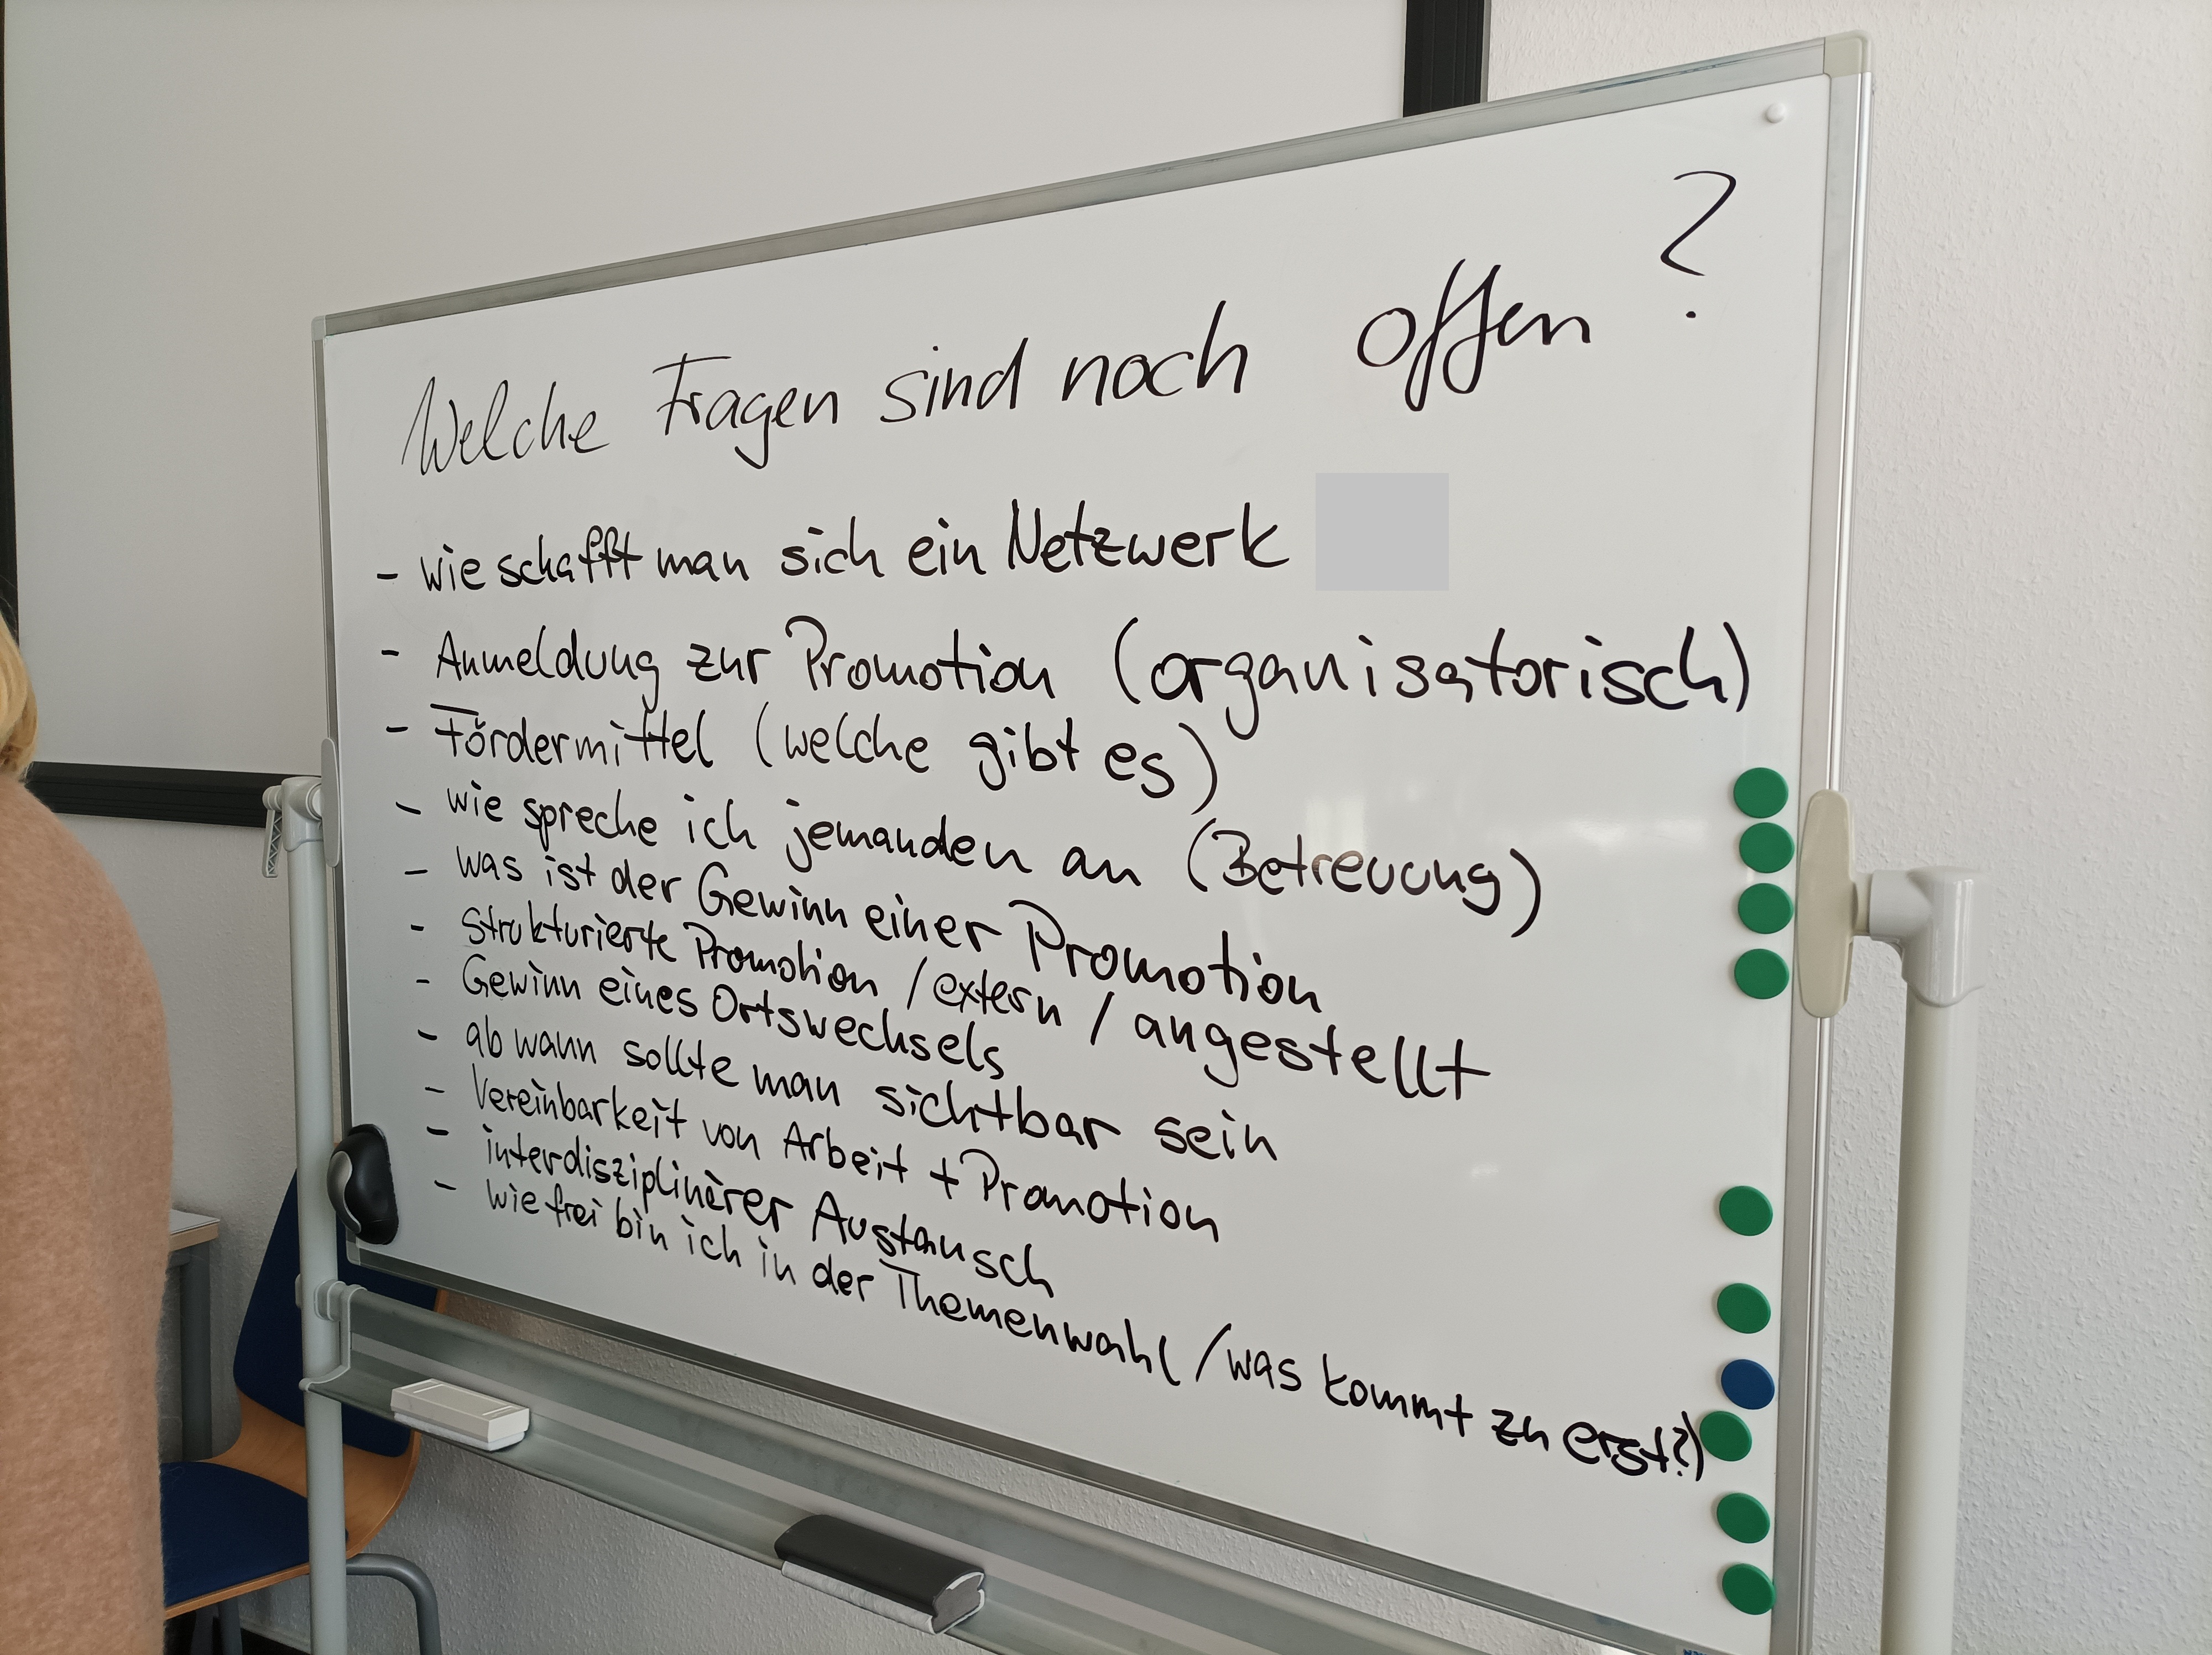 Welche Fragen sind noch offen ?
- wie schafft man sich ein Netzwerk
- Anmeldung zur Promotion (organisatorisch)
- Fördermittel (welche gibt es)
- wie spreche ich jemanden an (Betreuung)
- was ist der Gewinn einer Promotion
- strukturierte Promotion / extern / angestellt
- Gewinn eines Ortswechsels
- ab wann sollte man sichtbar sein
- Vereinbarkeit von Arbeit + Promotion
- interdisziplinärer Austausch
- wie frei bin ich in der Themenwahl / was kommt zu erst?)